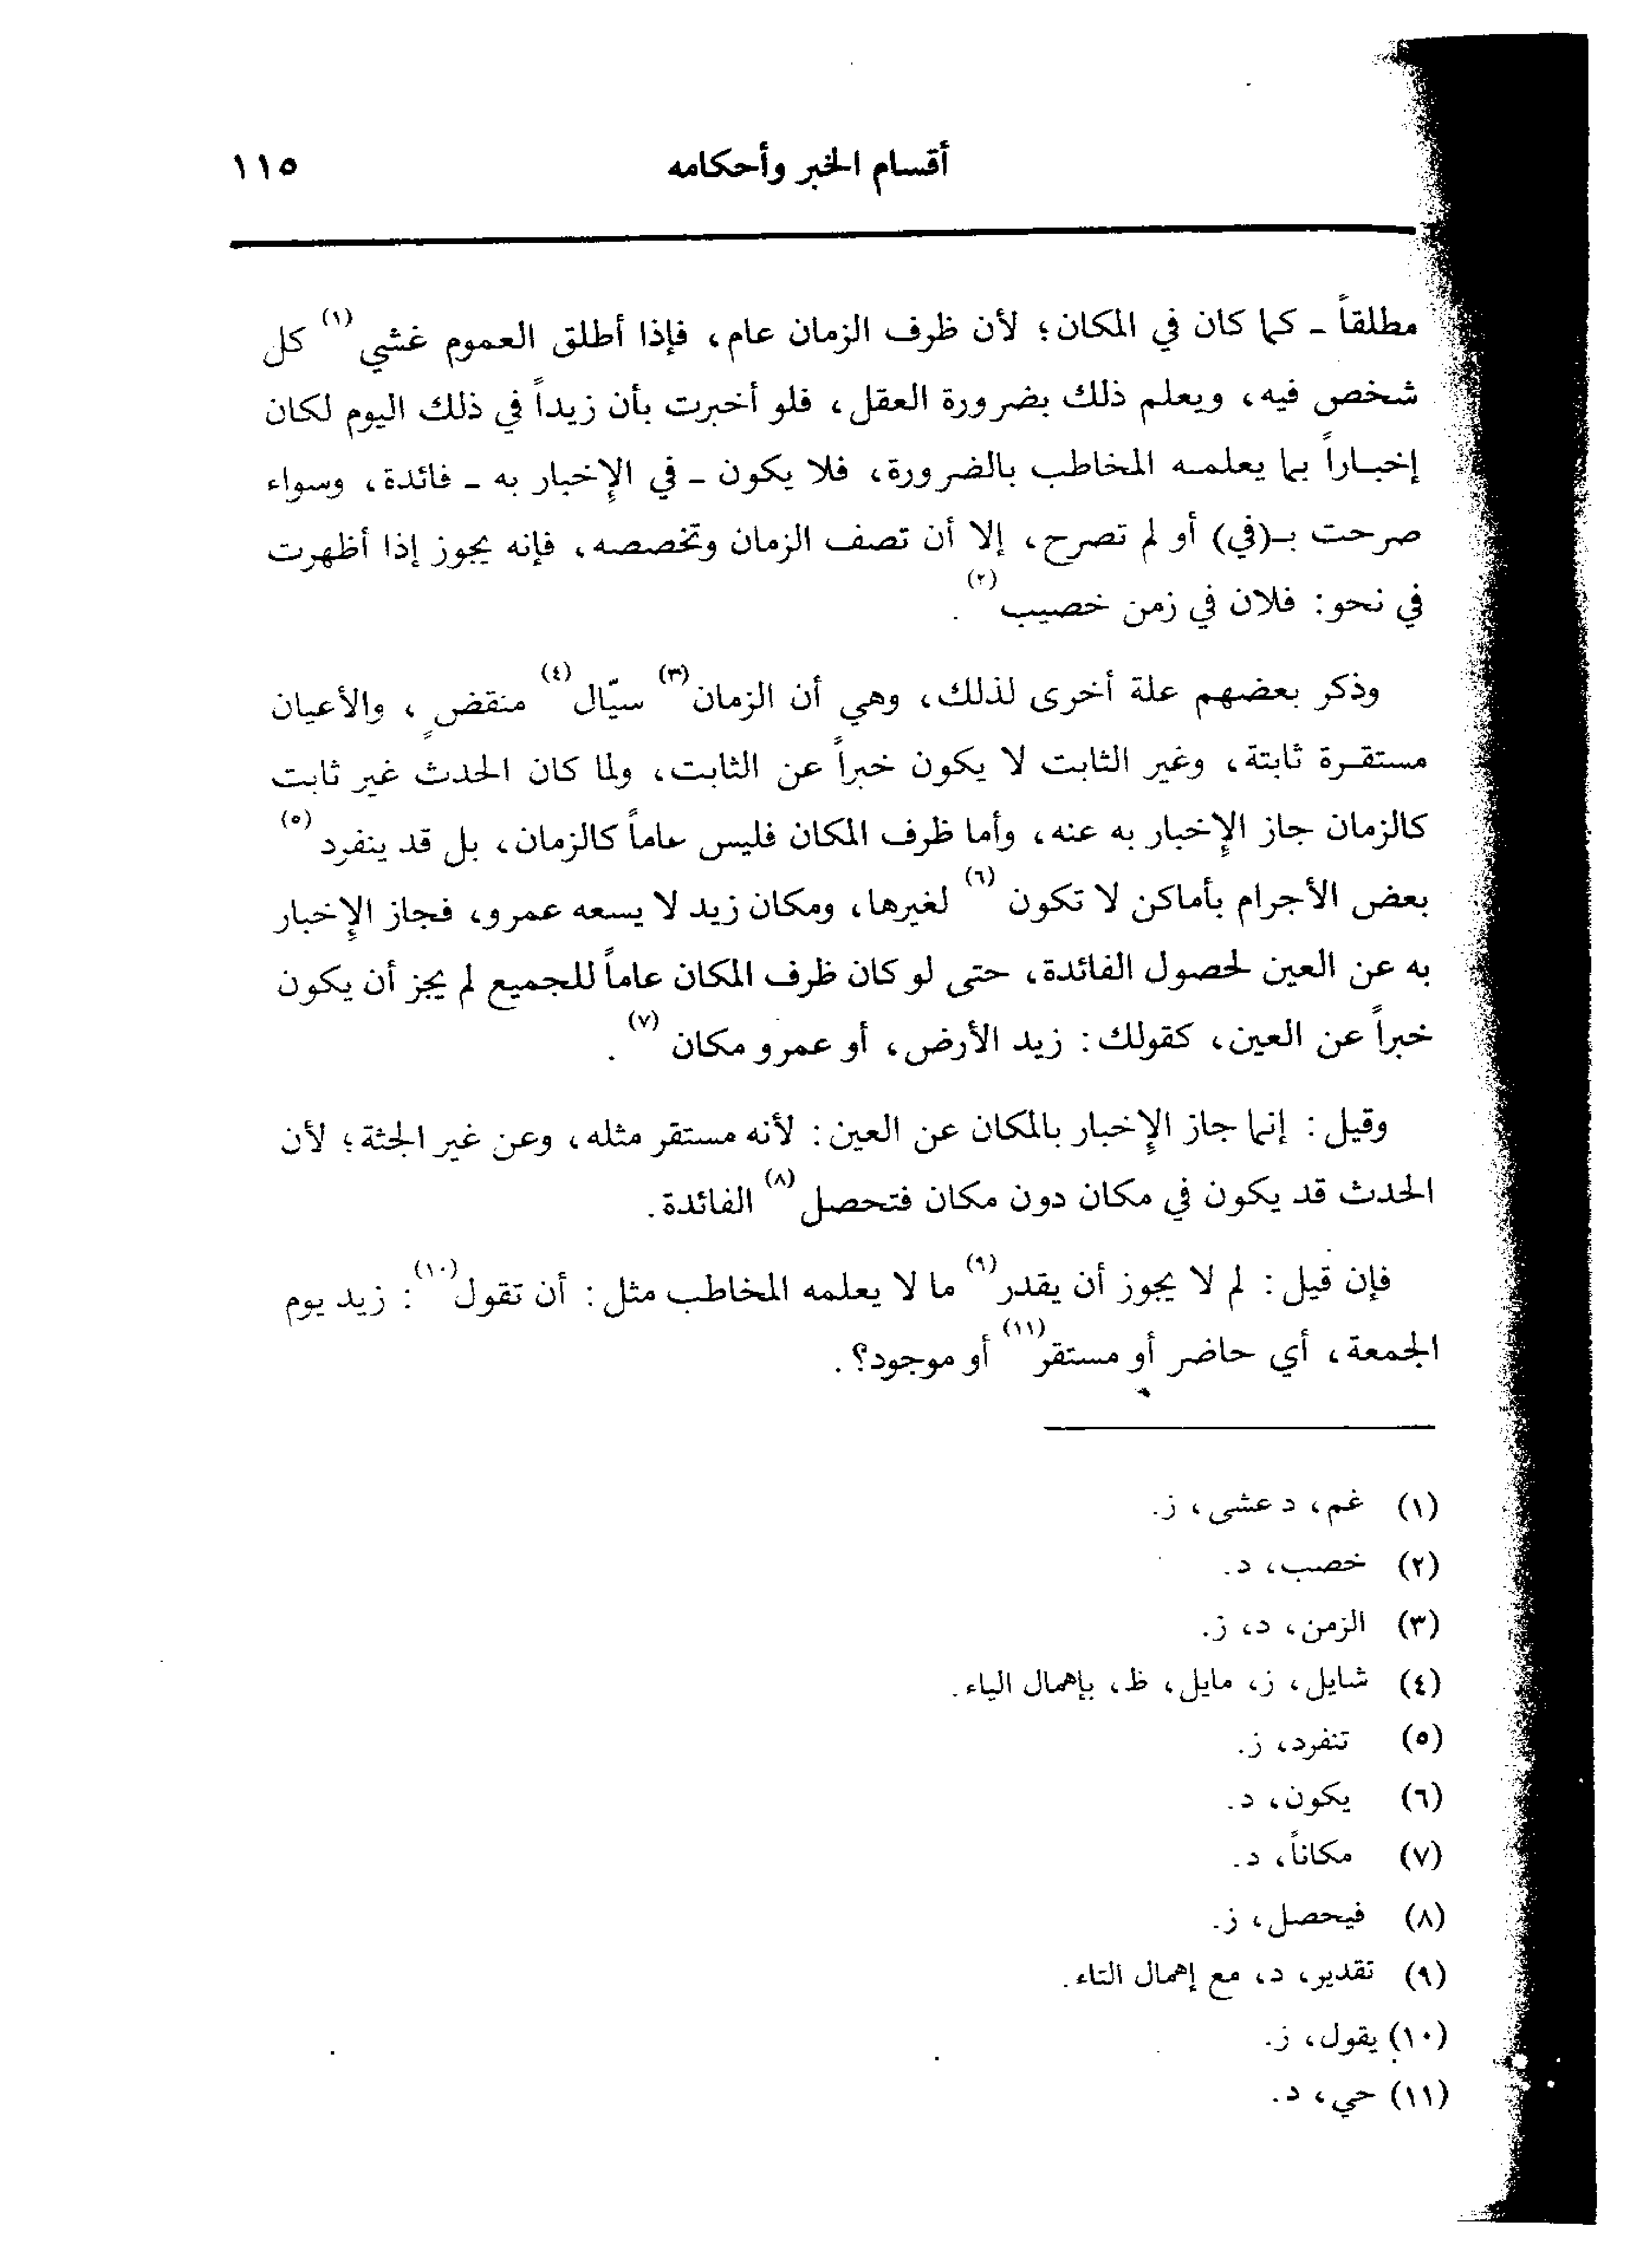 أقسام الخبر وأحكامه ١١٥
مطلقاً - كما كان في المكان؛ لأن ظرف الزمان عام، فإذا أطلق العموم غشي(١) كل
شخص فيه، ويعلم ذلك بضرورة العقل، فلو أخبرت بأن زيداً في ذلك اليوم لكان
إخباراً بما يعلمه المخاطب بالضرورة، فلا يكون - في الإخبار به - فائدة، وسواء
صرحت بـ(في) أو لم تصرح، إلا أن تصف الزمان وتخصصه، فإنه يجوز إذا أظهرت
في نحو: فلان في زمن خصيب(٢).
وذكر بعضهم علة أخرى لذلك، وهي أن الزمان(٣) سيّال(٤) منقضٍ، والأعيان
مستقرة ثابتة، وغير الثابت لا يكون خبراً عن الثابت، ولما كان الحدث غير ثابت
كالزمان جاز الإخبار به عنه، وأما ظرف المكان فليس عاماً كالزمان، بل قد ينفرد(٥)
بعض الأجرام بأماكن لا تكون(٦) لغيرها، ومكان زيد لا يسعه عمرو، فجاز الإخبار
به عن العين لحصول الفائدة، حتى لو كان ظرف المكان عاماً للجميع لم يجز أن يكون
خبراً عن العين، كقولك: زيد الأرض، أو عمرو مكان(٧).
وقيل: إنما جاز الإخبار بالمكان عن العين: لأنه مستقر مثله، وعن غير الجثة؛ لأن
الحدث قد يكون في مكان دون مكان فتحصل(٨) الفائدة.
فإن قيل: لم لا يجوز أن يقدر(٩) ما لا يعلمه المخاطب مثل: أن تقول(١٠): زيد يوم
الجمعة، أي حاضر أو مستقر(١١) أو موجود؟.
(١) غم، د عشى، ز.
(٢) خصب، د.
(٣) الزمن، د، ز.
(٤) شايل، ز، مايل، ظ، بإهمال الياء.
(٥) تنفرد، ز.
(٦) يكون، د.
(٧) مكاناً، د.
(٨) فيحصل، ز.
(٩) تقدير، د، مع إهمال التاء.
(١٠) يقول، ز.
(١١) حي، د.